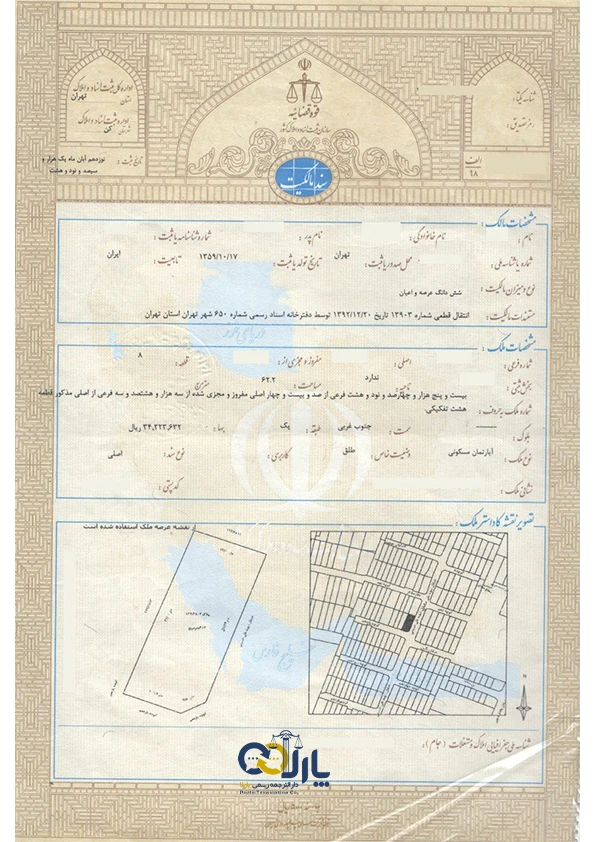 اداره کل ثبت اسناد و املاک
استان
تهران
اداره ثبت اسناد و املاک
شهرستان
کن
تاریخ ثبت :
نوزدهم آبان ماه یک هزار و
سیصد و نود و هشت
قوه قضائیه
سازمان ثبت اسناد و املاک کشور
سند مالکیت
شناسه یکتا :
رمز تصدیق :
الف
۱۸
مشخصات مالک :
نام :
نام خانوادگی :
نام پدر :
شماره شناسنامه یا ثبت :
شماره یا شناسه ملی :
محل صدور یا ثبت :
تهران
تاریخ تولد یا ثبت :
۱۳۵۹/۱۰/۱۷
تابعیت :
ایران
نوع و میزان مالکیت :
شش دانگ عرصه و اعیان
مستندات مالکیت :
انتقال قطعی شماره ۱۳۹۰۳ تاریخ ۱۳۹۲/۱۲/۲۰ توسط دفترخانه اسناد رسمی شماره ۶۵۰ شهر تهران استان تهران
مشخصات ملک :
شماره فرعی :
اصلی :
مفروز و مجزی از :
قطعه :
۸
بخش ثبتی :
ناحیه :
ندارد
مساحت :
۶۲.۲
شماره ملک به حروف :
بیست و پنج هزار و چهارصد و نود و هشت فرعی از صد و بیست و چهار اصلی مفروز و مجزی شده از سه هزار و هشتصد و سه فرعی از اصلی مذکور قطعه
هشت تفکیکی.
بلوک :
سمت :
جنوب غربی
طبقه :
یک
بها :
۳۴,۳۲۳,۶۳۲ ریال
نوع ملک :
آپارتمان مسکونی
وضعیت خاص :
طلق
کاربری :
نوع سند :
اصلی
نشانی ملک :
کد پستی :
تصویر نقشه کاداستر ملک :
نقشه عرصه ملک استفاده شده است
دریای خزر
خلیج فارس
N
شناسه ملی جغرافیایی املاک و مستغلات ( جام ) :
پارلا
دارالترجمه رسمی پارلا